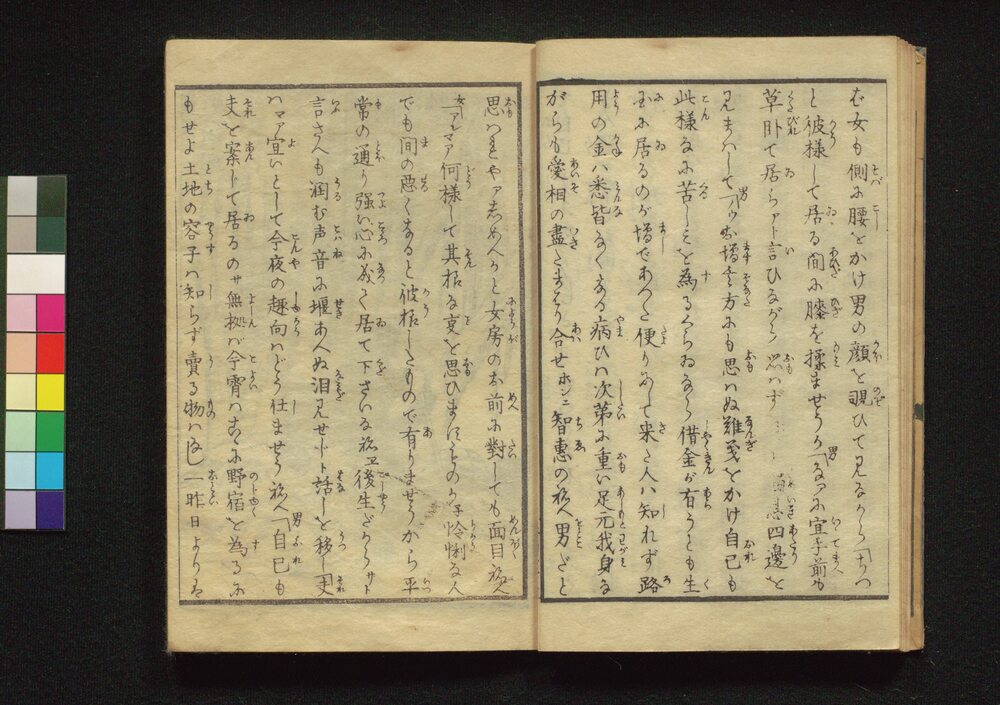 が女も側に腰をかけ男の顔を覗ひて見ながら「ちつ
と彼様して居る間に膝を揉ませうか男「なアに宜手前も
草臥て居らアト言ひながら思はず 四邊を
見まはして男「 増吉方にも思はぬ難義をかけ自己も
此様な苦しみを為るくらゐなら借金が有うとも生
玉に居るのが増であつた便りにして来た人は知れず路
用の金は悉皆なくなる病ひは次第に重い足元我身な
がらも愛相の盡たまはり合せホンニ智惠のねへ男だと
思はれやアしめへかと女房のお前に對しても面目ねへ
女「アレマア何様して其様な事を思ひますものかネ怜悧な人
でも間の悪くなると彼様したもので有りませうから平
常の通り強い心に成て居て下さいなねヱ後生だからサト
言さへも潤む声音に堰あへぬ泪見せじト話しを移し「夫
はマア宜いとして今夜の趣向はどう仕ませうねへ男「自己も
夫を案じて居るのサ無拠ば今宵はこゝに野宿を為るに
もせよ土地の容子は知らず賣る物はなし一昨日よりろ